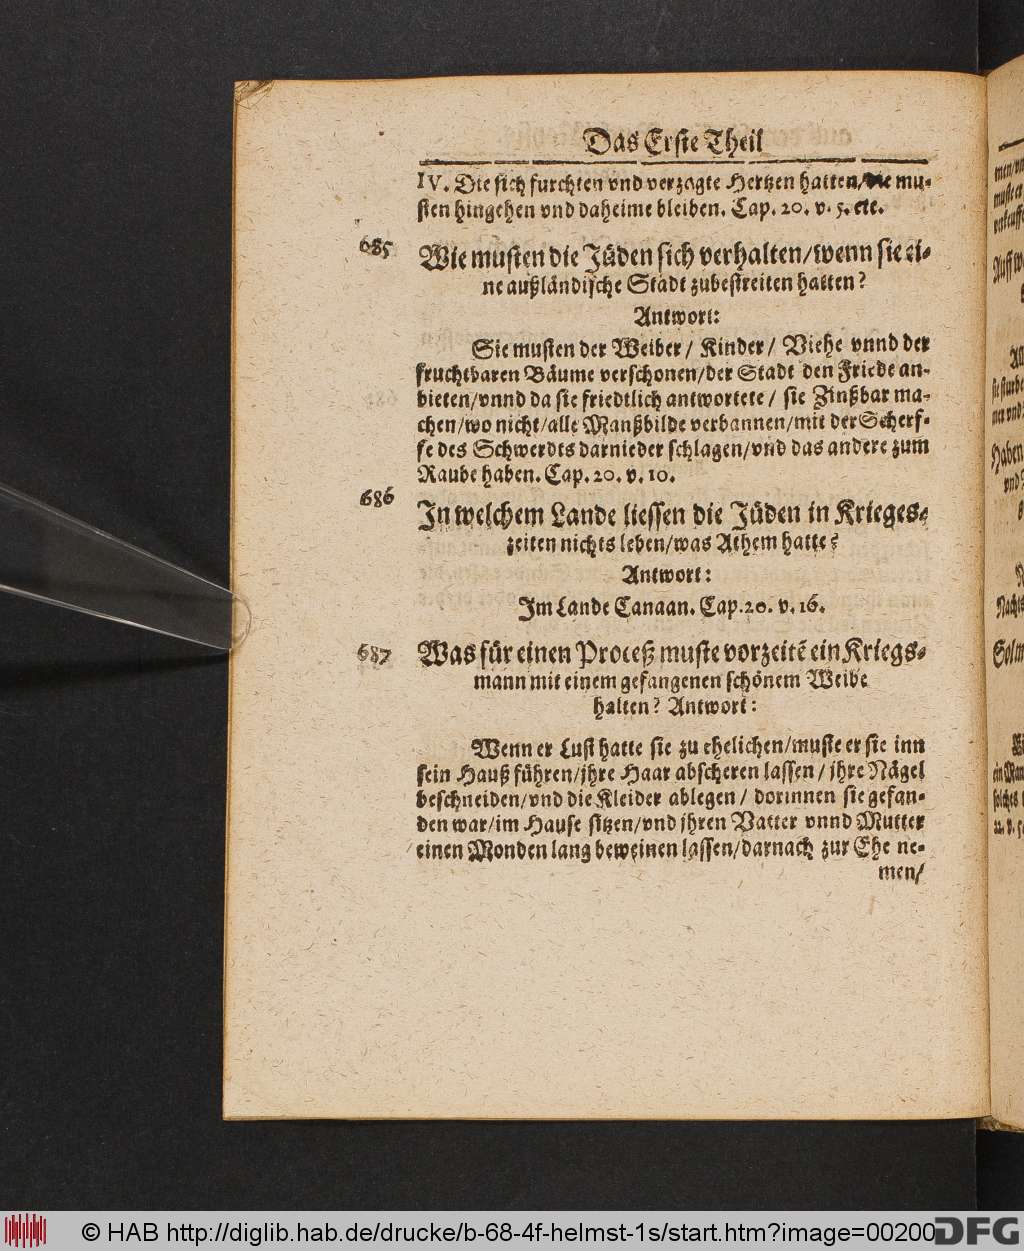 Das Erste Theil
IV. Die sich furchten vnd verzagte Hertzen hatten/die mu-
sten hingehen vnd daheime bleiben. Cap. 20. v. 5. etc.
685 Wie musten die Jüden sich verhalten/wenn sie ei-
ne außländische Stadt zubestreiten hatten?
Antwort:
Sie musten der Weiber / Kinder / Viehe vnnd der
fruchtbaren Bäume verschonen/der Stadt den Friede an-
bieten/vnnd da sie friedtlich antwortete / sie Zinßbar ma-
chen/wo nicht/alle Manßbilde verbannen/mit der Scherf-
fe des Schwerdts darnieder schlagen/vnd das andere zum
Raube haben. Cap. 20. v. 10.
686 In welchem Lande liessen die Jüden in Krieges-
zeiten nichts leben/was Athem hatte?
Antwort:
Im Lande Canaan. Cap. 20. v. 16.
687 Was für einen Proceß muste vorzeitē ein Kriegs-
mann mit einem gefangenen schönem Weibe
halten? Antwort:
Wenn er Lust hatte sie zu ehelichen/muste er sie inn
sein Hauß führen/ihre Haar abscheren lassen / ihre Nägel
beschneiden/vnd die Kleider ablegen / dorinnen sie gefan-
den war/im Hause sitzen/vnd ihren Vatter vnnd Mutter
einen Monden lang beweinen lassen/darnach zur Ehe ne-
men/
© HAB http://diglib.hab.de/drucke/b-68-4f-helmst-1s/start.htm?image=00200
DFG